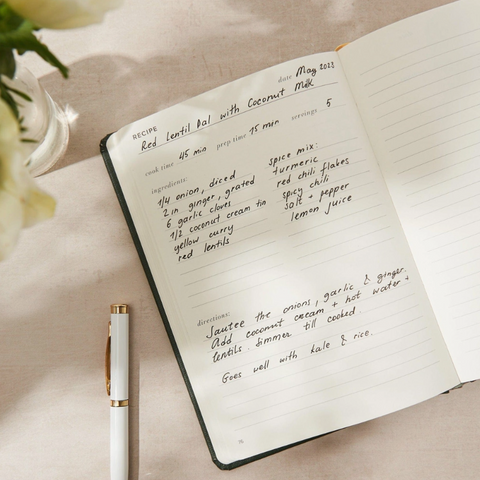 date May 2022
RECIPE
Red Lentil Dal with Coconut Milk
cook time 45 min prep time 15 min servings 5
ingredients:
1/4 onion, diced
2 in ginger, grated
6 garlic cloves
1/2 coconut cream tin
yellow curry
red lentils
spice mix:
turmeric
red chili flakes
spicy chili
salt + pepper
lemon juice
directions:
Sautee the onions, garlic & ginger.
Add coconut cream + hot water +
lentils. Simmer till cooked.
Goes well with kale & rice.
76